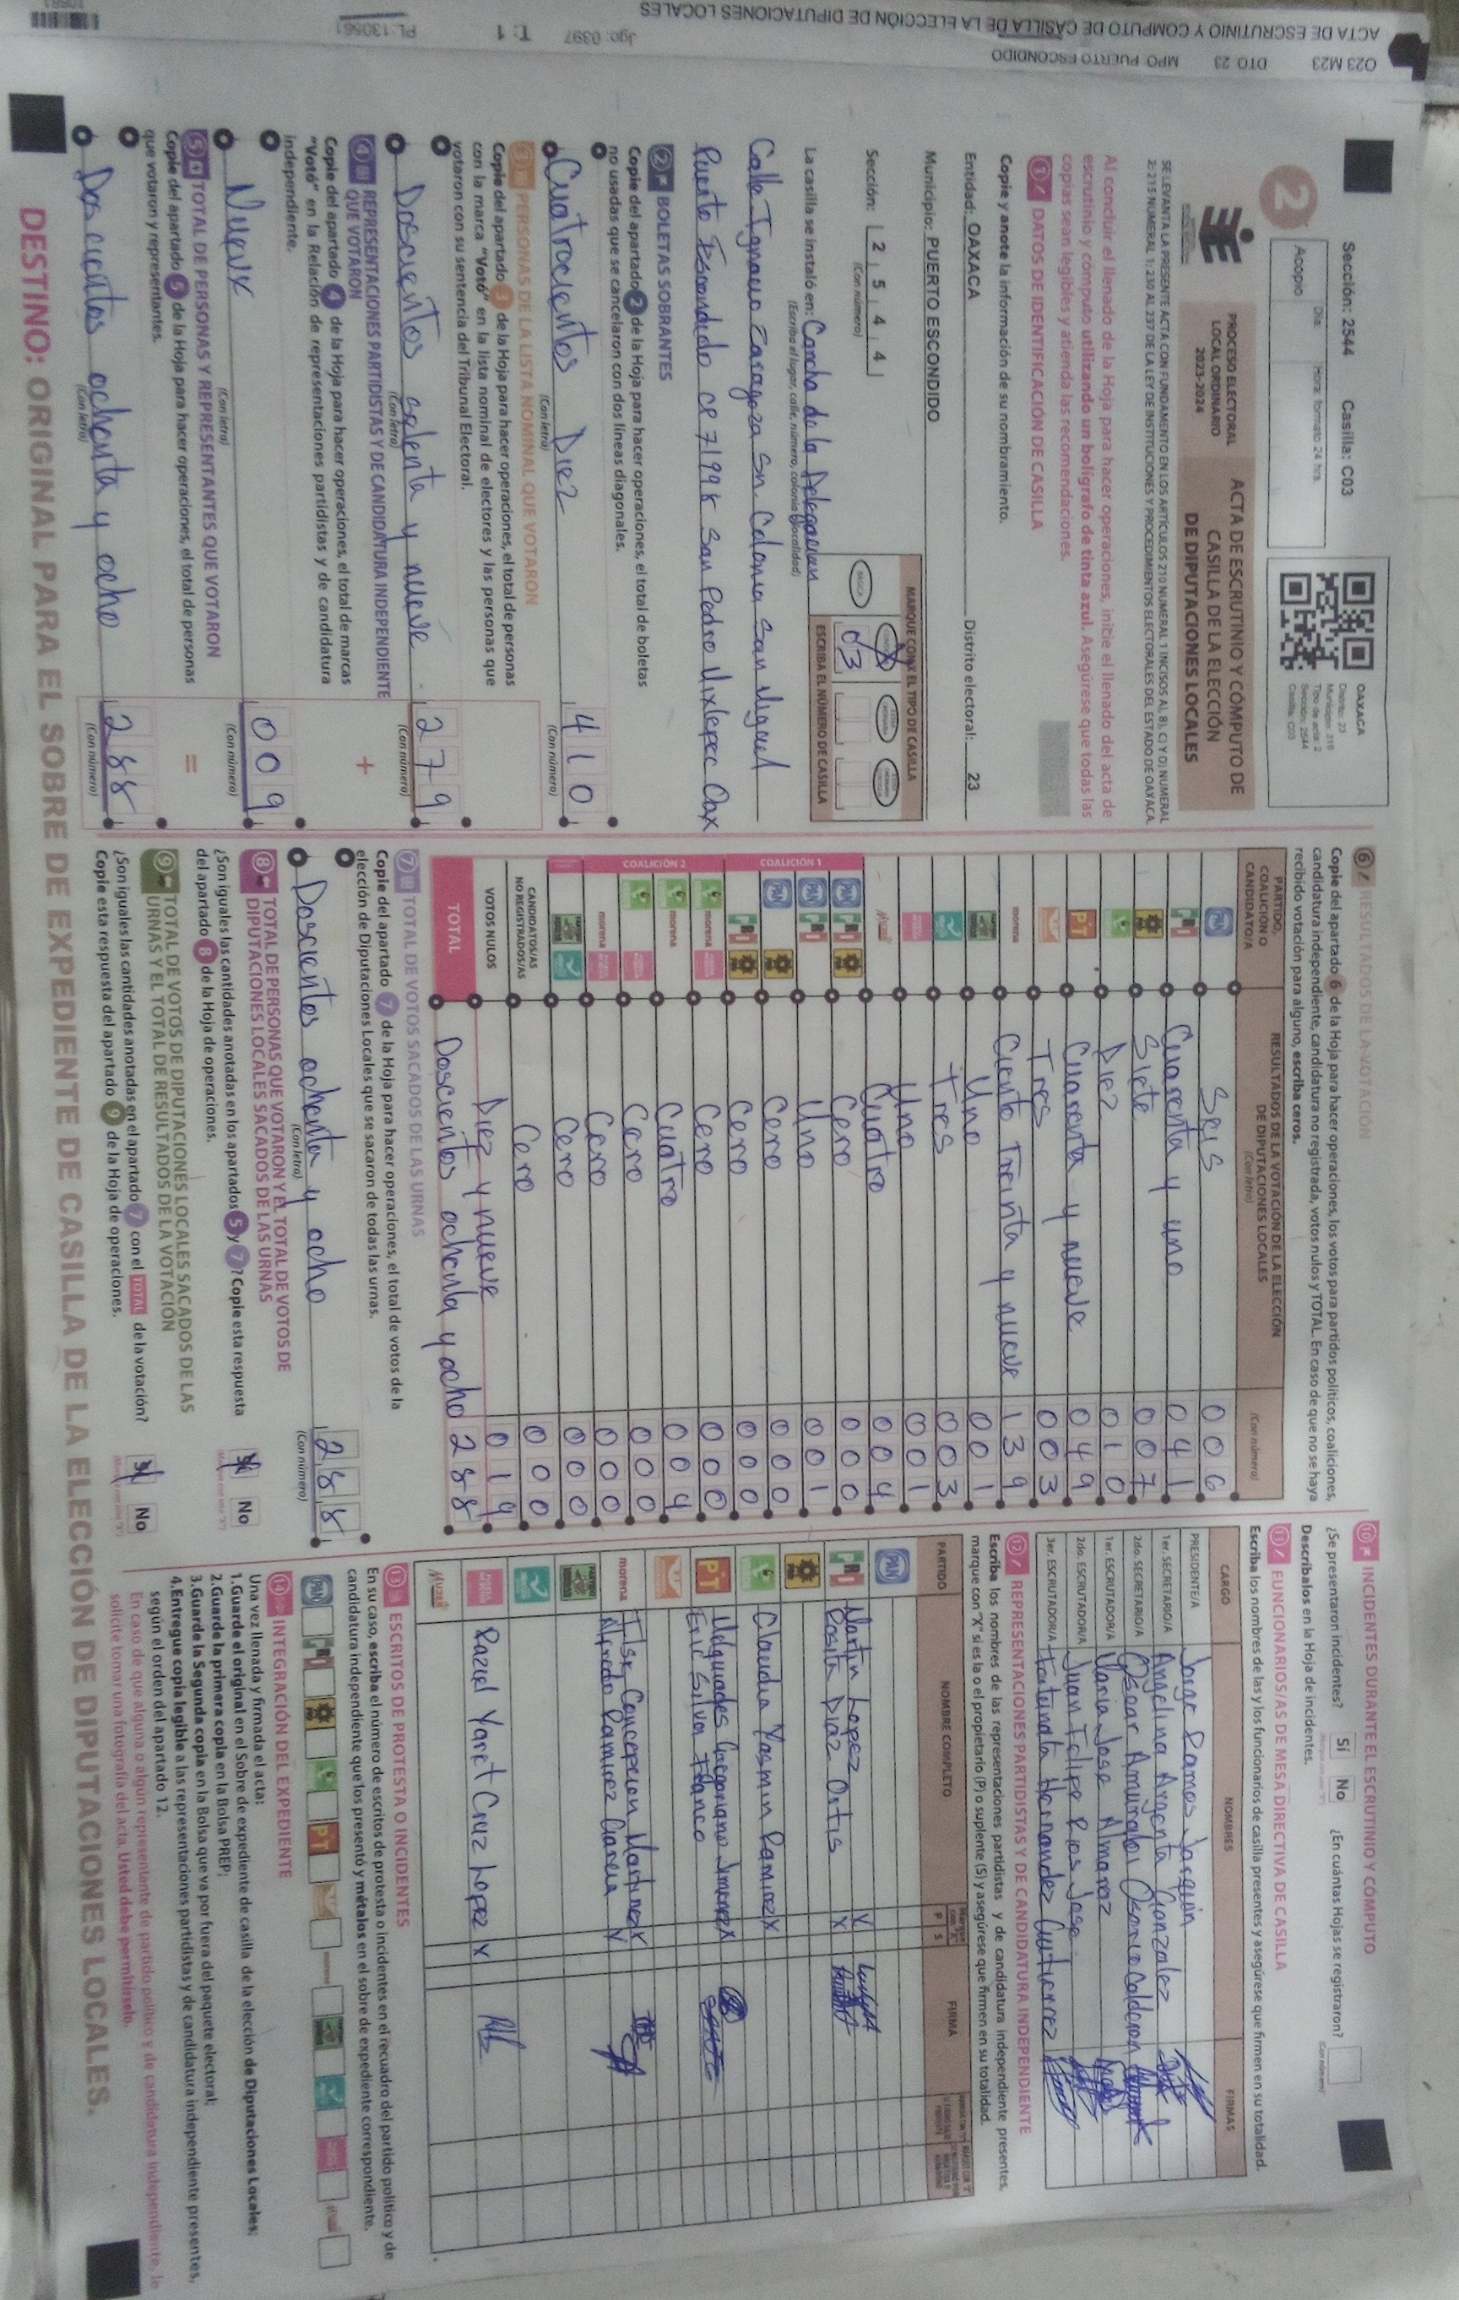 O23 M23 DTO 23 MPO PUERTO ESCONDIDO
ACTA DE ESCRUTINIO Y COMPUTO DE CASILLA DE LA ELECCIÓN DE DIPUTACIONES LOCALES
Jgo: 0397 T: 1 PL: 130561
Sección: 2544 Casilla: C03
2
Acopio
Día: Hora: formato 24 hrs.
OAXACA
Distrito: 23
Tipo de acta: 2
Sección: 2544
Casilla: C03
PROCESO ELECTORAL
LOCAL ORDINARIO
2023-2024
ACTA DE ESCRUTINIO Y CÓMPUTO DE
CASILLA DE LA ELECCIÓN
DE DIPUTACIONES LOCALES
SE LEVANTA LA PRESENTE ACTA CON FUNDAMENTO EN LOS ARTÍCULOS 210 NUMERAL 1 INCISOS A), B), C) Y D); NUMERAL
2; 215 NUMERAL 1; 230 AL 237 DE LA LEY DE INSTITUCIONES Y PROCEDIMIENTOS ELECTORALES DEL ESTADO DE OAXACA.
Al concluir el llenado de la Hoja para hacer operaciones, inicie el llenado del acta de
escrutinio y cómputo utilizando un bolígrafo de tinta azul. Asegúrese que todas las
copias sean legibles y atienda las recomendaciones.
1 DATOS DE IDENTIFICACIÓN DE CASILLA
Copie y anote la información de su nombramiento.
Entidad: OAXACA Distrito electoral: 23
Municipio: PUERTO ESCONDIDO
Sección: 2 5 4 4
(Con número)
MARQUE CON X EL TIPO DE CASILLA
BÁSICA
ESCRIBA EL NÚMERO DE CASILLA
03
La casilla se instaló en: Cancha de la Delegacion
(Escriba el lugar, calle, número, colonia o localidad)
Calle Ignacio Zaragoza Sn. Colonia San Miguel
Puerto Escondido CP 71998 San Pedro Mixtepec Oax
2 BOLETAS SOBRANTES
Copie del apartado 2 de la Hoja para hacer operaciones, el total de boletas
no usadas que se cancelaron con dos líneas diagonales.
Cuatrocientos Diez 410
(Con letra) (Con número)
3 PERSONAS DE LA LISTA NOMINAL QUE VOTARON
Copie del apartado 3 de la Hoja para hacer operaciones, el total de personas
con la marca "Votó" en la lista nominal de electores y las personas que
votaron con su sentencia del Tribunal Electoral.
Doscientos setenta y nueve 279
(Con letra) (Con número)
4 REPRESENTACIONES PARTIDISTAS Y DE CANDIDATURA INDEPENDIENTE
QUE VOTARON
+
Copie del apartado 4 de la Hoja para hacer operaciones, el total de marcas
"Votó" en la Relación de representaciones partidistas y de candidatura
independiente.
Nueve 009
(Con letra) (Con número)
5 TOTAL DE PERSONAS Y REPRESENTANTES QUE VOTARON
=
Copie del apartado 5 de la Hoja para hacer operaciones, el total de personas
que votaron y representantes.
Doscientos ochenta y ocho 288
(Con letra) (Con número)
6 RESULTADOS DE LA VOTACIÓN
Copie del apartado 6 de la Hoja para hacer operaciones, los votos para partidos políticos, coaliciones,
candidatura independiente, candidatura no registrada, votos nulos y TOTAL. En caso de que no se haya
recibido votación para alguno, escriba ceros.
PARTIDO,
COALICIÓN O
CANDIDATO/A
RESULTADOS DE LA VOTACIÓN DE LA ELECCIÓN
DE DIPUTACIONES LOCALES
(Con letra) (Con número)
PAN Seis 006
PRI Cuarenta y uno 041
Siete 007
Diez 010
PT Cuarenta y nueve 049
Tres 003
morena Ciento Treinta y nueve 139
Uno 001
Tres 003
Uno 001
Cuatro 004
COALICIÓN 1
PAN PRI Cero 000
PAN PRI Uno 001
PAN Cero 000
PRI Cero 000
COALICIÓN 2
morena Cero 000
morena Cuatro 004
Cero 000
morena Cero 000
Cero 000
CANDIDATOS/AS
NO REGISTRADOS/AS Cero 000
VOTOS NULOS Diez y nueve 019
TOTAL Doscientos ochenta y ocho 288
7 TOTAL DE VOTOS SACADOS DE LAS URNAS
Copie del apartado 7 de la Hoja para hacer operaciones, el total de votos de la
elección de Diputaciones Locales que se sacaron de todas las urnas.
Doscientos ochenta y ocho 288
(Con letra) (Con número)
8 TOTAL DE PERSONAS QUE VOTARON Y EL TOTAL DE VOTOS DE
DIPUTACIONES LOCALES SACADOS DE LAS URNAS
¿Son iguales las cantidades anotadas en los apartados 5 y 7? Copie esta respuesta
del apartado 8 de la Hoja de operaciones.
Sí No
9 TOTAL DE VOTOS DE DIPUTACIONES LOCALES SACADOS DE LAS
URNAS Y EL TOTAL DE RESULTADOS DE LA VOTACIÓN
¿Son iguales las cantidades anotadas en el apartado 7 con el TOTAL de la votación?
Copie esta respuesta del apartado 9 de la Hoja de operaciones.
Sí No
10 INCIDENTES DURANTE EL ESCRUTINIO Y CÓMPUTO
¿Se presentaron incidentes? Sí No ¿En cuántas Hojas se registraron?
Descríbalos en la Hoja de incidentes.
11 FUNCIONARIOS/AS DE MESA DIRECTIVA DE CASILLA
Escriba los nombres de las y los funcionarios de casilla presentes y asegúrese que firmen en su totalidad.
CARGO NOMBRES FIRMAS
PRESIDENTE/A Jorge Ramos Joaquin
1er. SECRETARIO/A Angelina Argenta Gonzalez
2do. SECRETARIO/A Oscar Osorio Calderon
1er. ESCRUTADOR/A Maria Jose Almaraz
2do. ESCRUTADOR/A Juan Felipe Rios Jose
3er. ESCRUTADOR/A Hernandez Gutierrez
12 REPRESENTACIONES PARTIDISTAS Y DE CANDIDATURA INDEPENDIENTE
Escriba los nombres de las representaciones partidistas y de candidatura independiente presentes,
marque con "X" si es la o el propietario (P) o suplente (S) y asegúrese que firmen en su totalidad.
PARTIDO NOMBRE COMPLETO P S FIRMA
PAN
PRI Martin Lopez X
Rosita Diaz Ortis X
Claudia Yasmin Ramirez X
PT Melquiades Jimenez X
Eric Silva Franco
morena Ilse Concepcion Martinez X
Alfredo Ramirez Garcia X
Raziel Yaret Cruz Lopez X
13 ESCRITOS DE PROTESTA O INCIDENTES
En su caso, escriba el número de escritos de protesta o incidentes en el recuadro del partido político y de
candidatura independiente que los presentó y métalos en el sobre de expediente correspondiente.
14 INTEGRACIÓN DEL EXPEDIENTE
Una vez llenada y firmada el acta:
1.Guarde el original en el Sobre de expediente de casilla de la elección de Diputaciones Locales;
2.Guarde la primera copia en la Bolsa PREP;
3.Guarde la Segunda copia en la Bolsa que va por fuera del paquete electoral;
4.Entregue copia legible a las representaciones partidistas y de candidatura independiente presentes,
según el orden del apartado 12.
En caso de que alguna o algún representante de partido político y de candidatura independiente, le
solicite tomar una fotografía del acta, Usted debe permitírselo.
DESTINO: ORIGINAL PARA EL SOBRE DE EXPEDIENTE DE CASILLA DE LA ELECCIÓN DE DIPUTACIONES LOCALES.